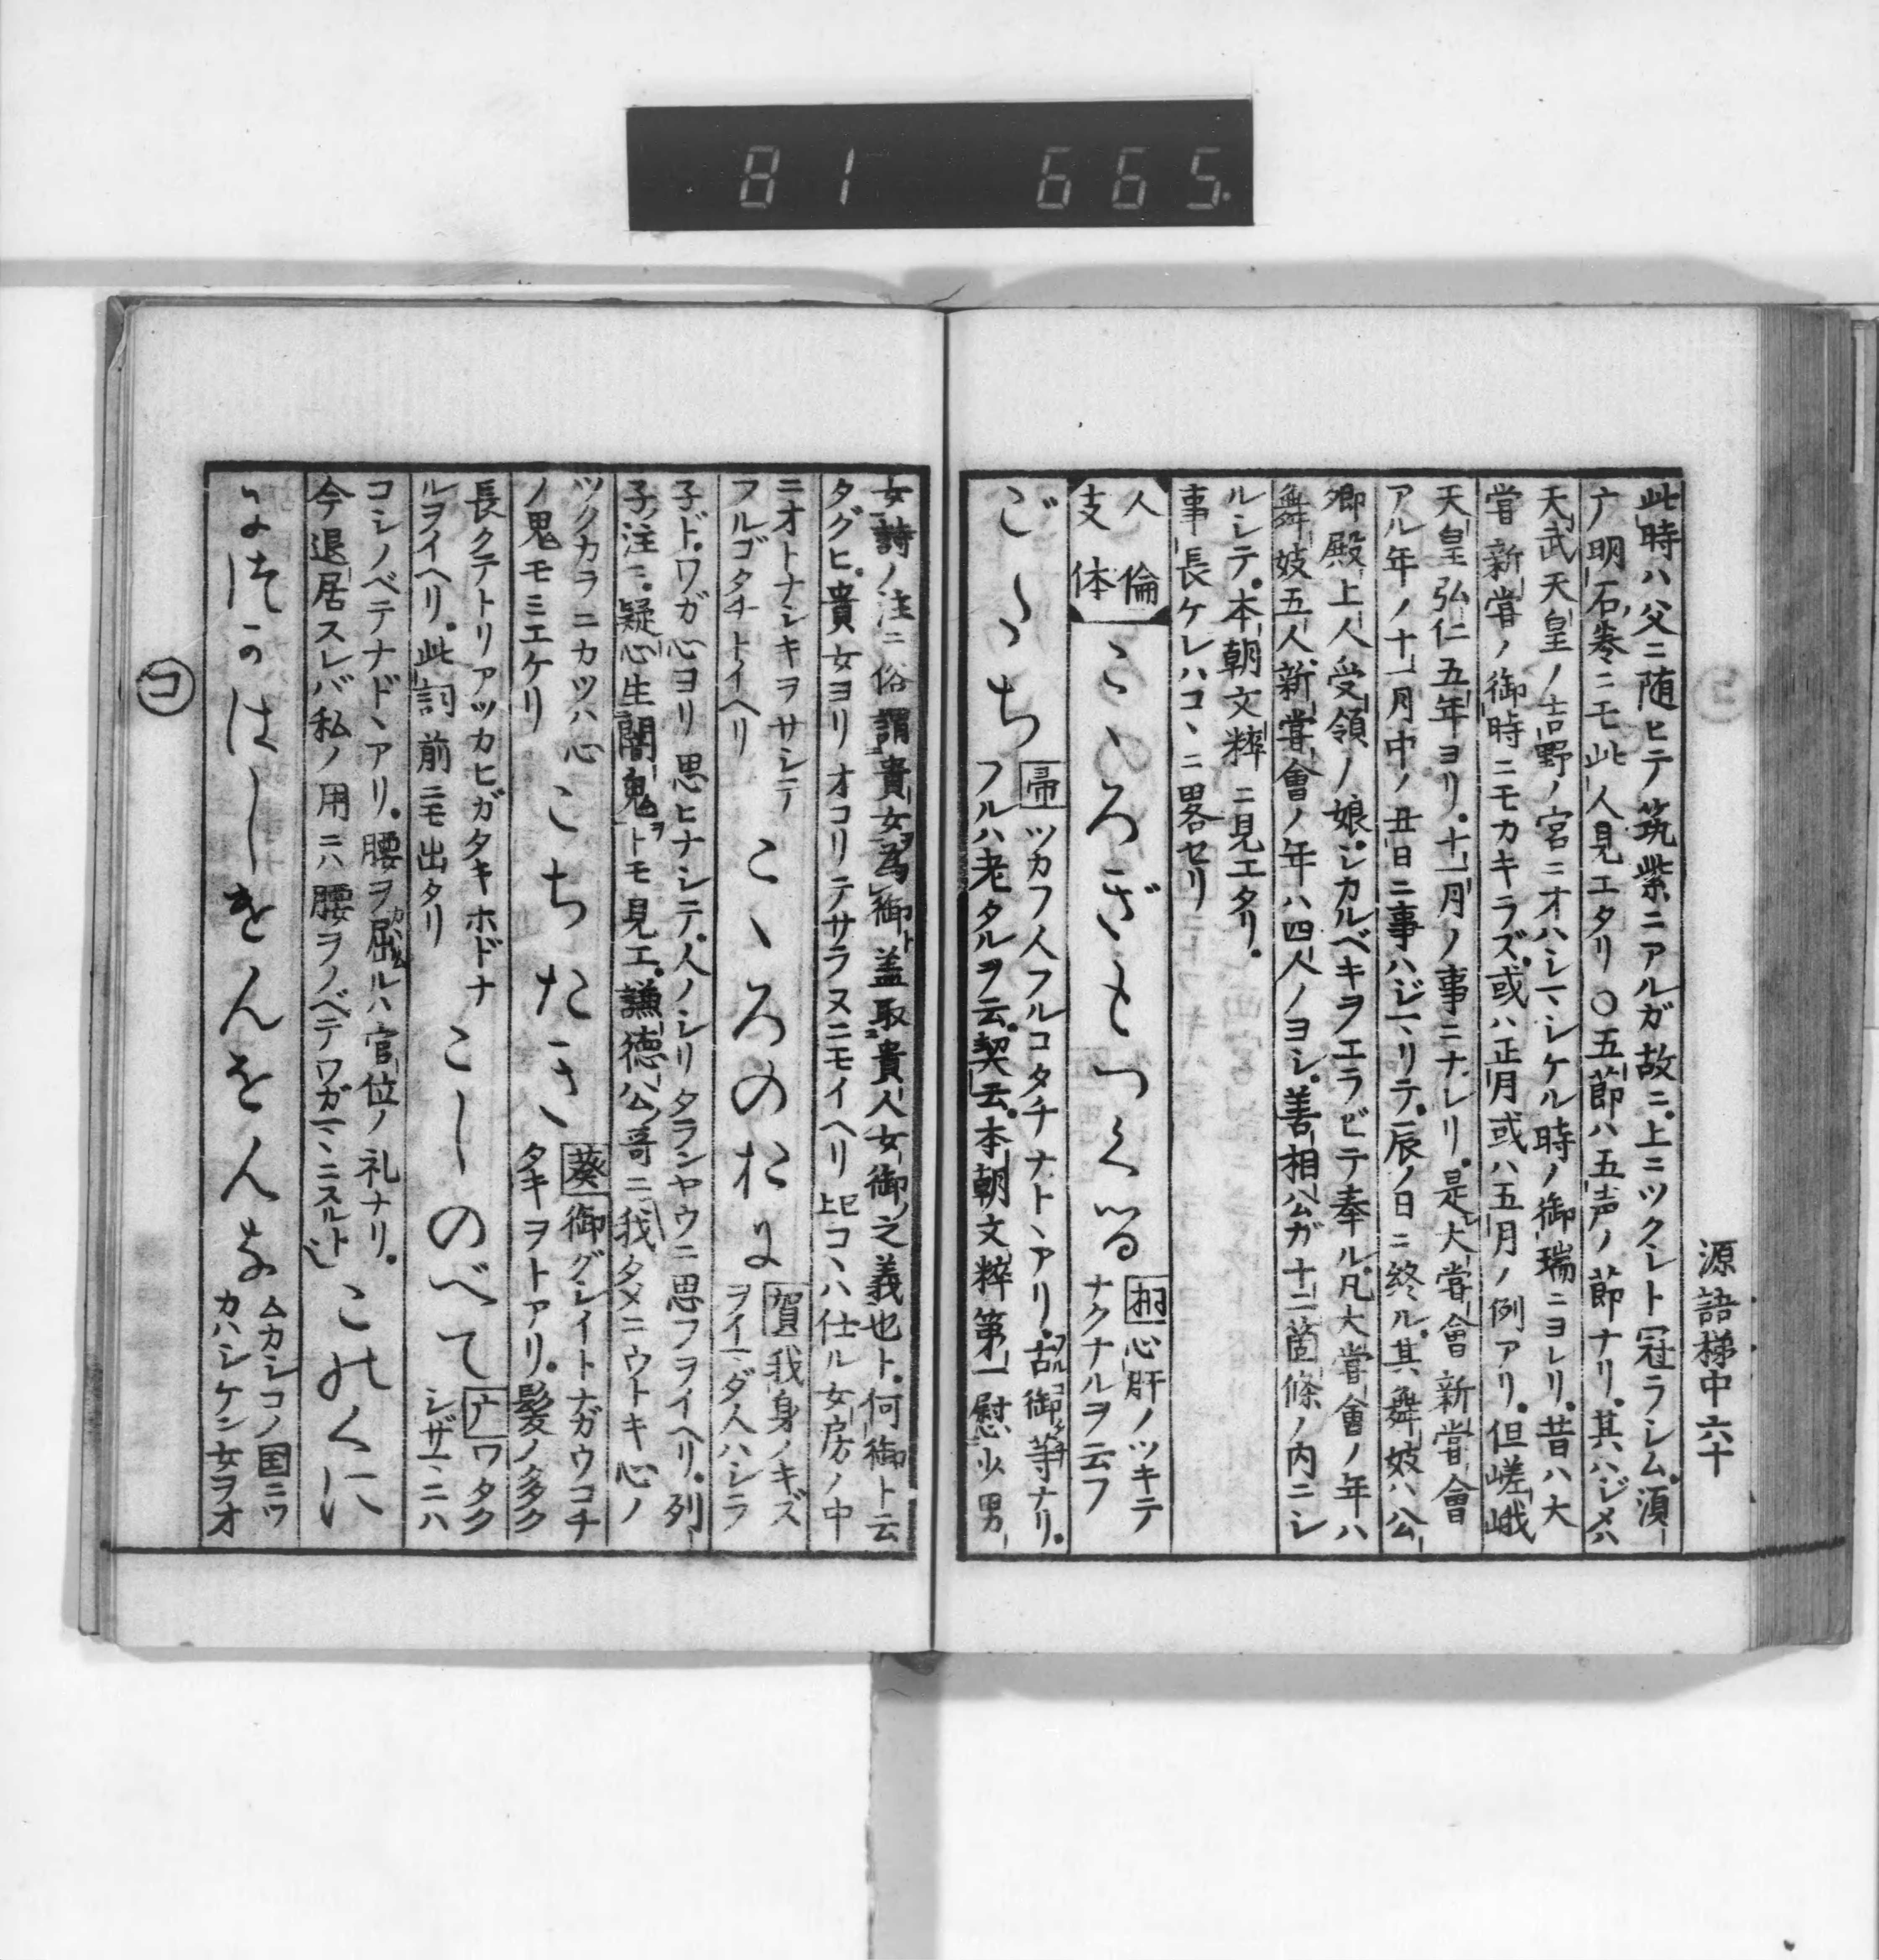 81 665.
源語梯中六十
此時ハ父ニ随ヒテ筑紫ニアルガ故ニ。上ニツクシト冠ラシム。須
广明石巻ニモ此人見エタリ〇五節ハ五声ノ節ナリ。其ハジメハ
天武天皇ノ吉野ノ宮ニオハシマシケル時ノ御瑞ニヨレリ。昔ハ大
嘗新嘗ノ御時ニモカキラズ。或ハ正月或ハ五月ノ例アリ。但嵯峨
天皇弘仁五年ヨリ。十一月ノ事ニナレリ。是大嘗會新嘗會
アル年ノ十一月中ノ丑日ニ事ハジマリテ。辰ノ日ニ終ル。其舞妓ハ公
卿殿上人受領ノ娘。シカルベキヲエラビテ奉ル。凡大嘗會ノ年ハ
舞妓五人新嘗會ノ年ハ四人ノヨシ。善相公ガ十二箇條ノ内ニシ
ルシテ。本朝文粹ニ見エタリ。
事長ケレハコヽニ畧セリ
人倫
支体
こゝろぎもつくる
心肝ノツキテ
ナクナルヲ云フ
ごたち
帚ツカフ人フルコタチナトヽアリ。古御等ナリ。
フルハ老タルヲ云。契云。本朝文粹第一慰少男
女詩ノ注ニ俗謂貴女為御盖取貴人女御之義也ト。何御ト云
タグヒ。貴女ヨリオコリテサラヌニモイヘリ上コヽハ仕ル女房ノ中
ニオトナシキヲサシテ
フルゴタチトイヘリ
こゝろのおに
賀我身ノキズ
ヲイマダ人ハシラ
子ド。ワガ心ヨリ思ヒナシテ。人ノシリタランヤウニ思フヲイヘリ。列
子注ニ。疑心生闇鬼トモ見エ。謙徳公ノ哥ニ我タメニウトキ心ノ
ツクカラニカツハ心
ノ鬼モミエケリ
こちたきゝ
葵御グシイトナガウコチ
タキヲトアリ。髪ノ多ク
長クテトリアツカヒガタキホドナ
ルヲイヘリ。此詞前ニモ出タリ
こしのべて
广ワタク
シザマニハ
コシノベテナドヽアリ。腰ヲ屈ルハ官位ノ礼ナリ。
今退居スレバ私ノ用ニハ腰ヲノベテワガマヽニスルト
このくに
につかはしをんをんな
ムカシコノ国ニツ
カハシケン女ヲオ
コ